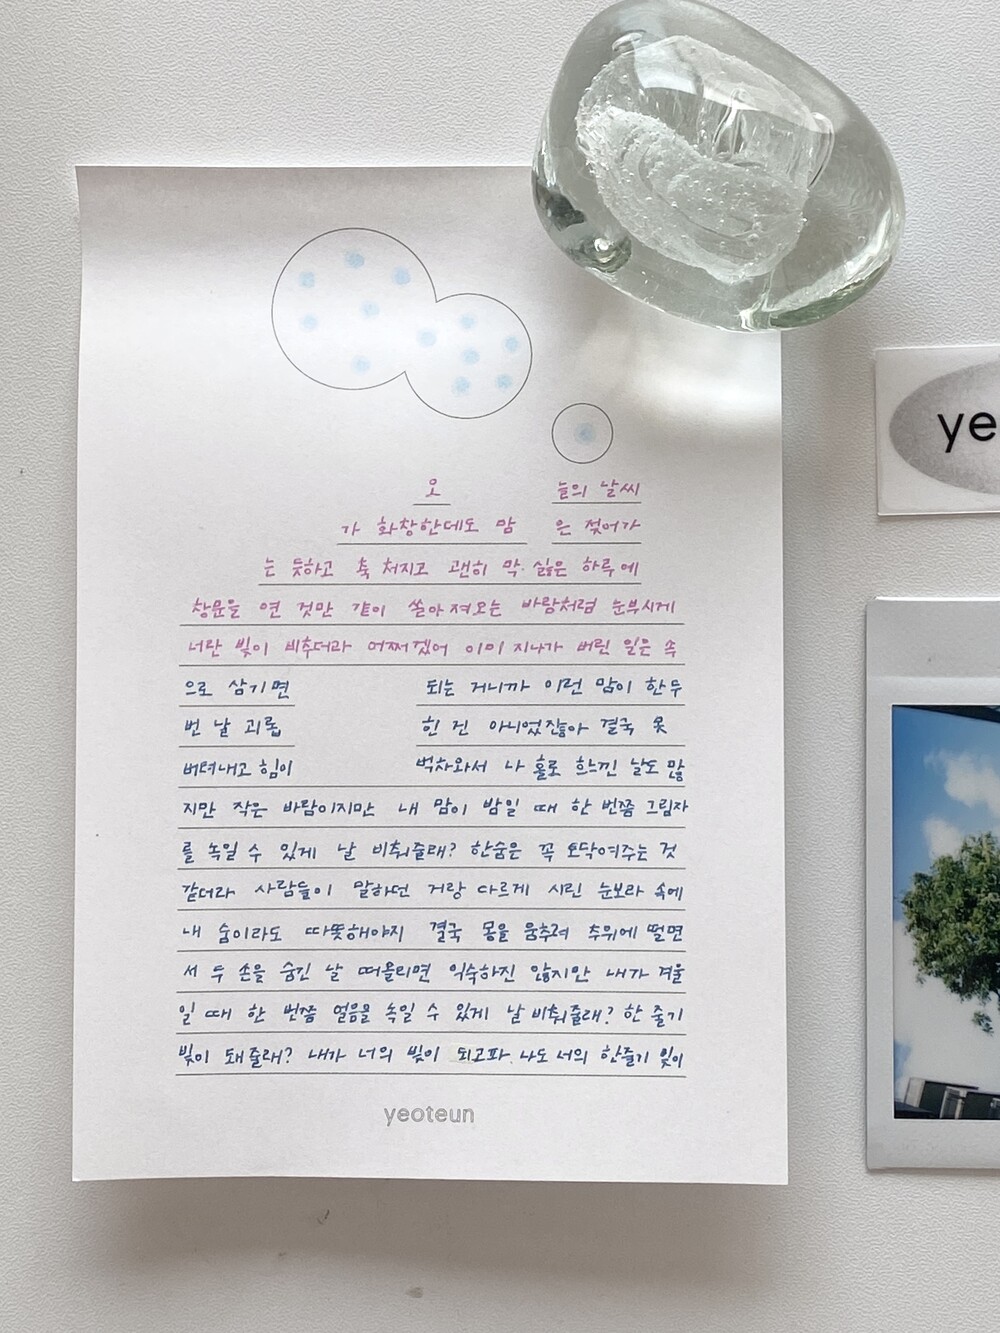 오 늘의 날씨
가 화창한데도 맘 은 젖어가
는 듯하고 축 처지고 괜히 막 싫은 하루에
창문을 연 것만 같이 쏟아져오는 바람처럼 눈부시게
너란 빛이 비추더라 어쩌겠어 이미 지나가 버린 일은 속
으로 삼기면 되는 거니까 이런 맘이 한두
번 날 괴롭 힌 건 아니었잖아 결국 못
버텨내고 힘이 벅차와서 나 홀로 흐느낀 날도 많
지만 작은 바람이지만 내 맘이 밤일 때 한 번쯤 그림자
를 녹일 수 있게 날 비춰줄래? 한숨은 꼭 토닥여주는 것
같더라 사람들이 말하던 거랑 다르게 시린 눈보라 속에
내 숨이라도 따뜻해야지 결국 몸을 움추려 추위에 떨면
서 두 손을 숨긴 날 떠올리면 익숙하진 않지만 내가 겨울
일 때 한 번쯤 얼음을 녹일 수 있게 날 비춰줄래? 한 줄기
빛이 돼줄래? 내가 너의 빛이 되고파 나도 너의 한줄기 빛이
yeoteun
ye